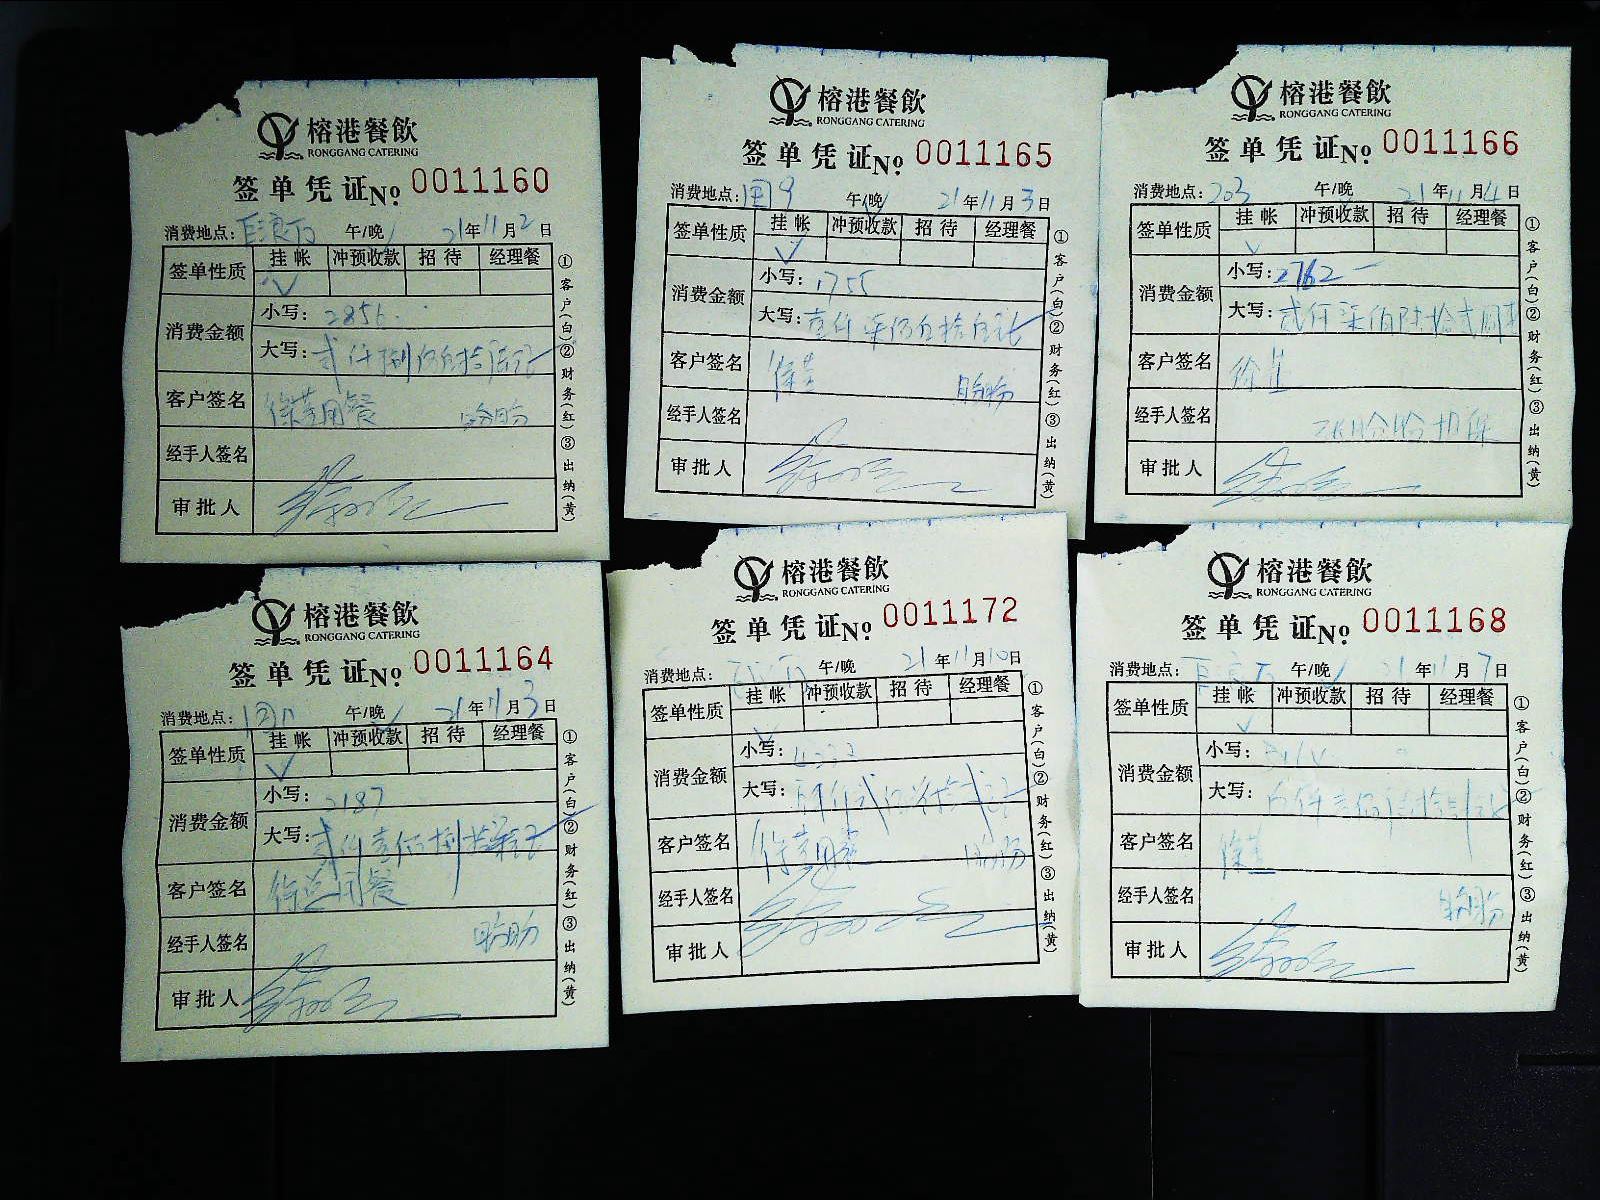 榕港餐飲
RONGGANG CATERING
签单凭证 № 0011160
消费地点: 午/晚 21年11月2日
签单性质 挂帐 冲预收款 招待 经理餐
消费金额
小写: 2856.
大写: 贰仟捌佰伍拾陆元
客户签名 徐 用餐
经手人签名
审批人
①客户(白)②财务(红)③出纳(黄)
榕港餐飲
RONGGANG CATERING
签单凭证 № 0011165
消费地点: 9 午/晚 21年11月3日
签单性质 挂帐 冲预收款 招待 经理餐
消费金额
小写: 1755
大写: 壹仟柒佰伍拾伍元
客户签名 徐
经手人签名
审批人
①客户(白)②财务(红)③出纳(黄)
榕港餐飲
RONGGANG CATERING
签单凭证 № 0011166
消费地点: 203 午/晚 21年11月4日
签单性质 挂帐 冲预收款 招待 经理餐
消费金额
小写: 2762
大写: 贰仟柒佰陆拾贰
客户签名 徐
经手人签名
审批人
①客户(白)②财务(红)③出纳(黄)
榕港餐飲
RONGGANG CATERING
签单凭证 № 0011164
消费地点: 午/晚 21年11月3日
签单性质 挂帐 冲预收款 招待 经理餐
消费金额
小写: 2187
大写: 贰仟壹佰捌拾柒元
客户签名 徐 用餐
经手人签名
审批人
①客户(白)②财务(红)③出纳(黄)
榕港餐飲
RONGGANG CATERING
签单凭证 № 0011172
消费地点: 午/晚 21年11月10日
签单性质 挂帐 冲预收款 招待 经理餐
消费金额
小写:
大写:
客户签名 徐 用餐
经手人签名
审批人
①客户(白)②财务(红)③出纳(黄)
榕港餐飲
RONGGANG CATERING
签单凭证 № 0011168
消费地点: 午/晚 21年11月7日
签单性质 挂帐 冲预收款 招待 经理餐
消费金额
小写:
大写:
客户签名 徐
经手人签名
审批人
①客户(白)②财务(红)③出纳(黄)